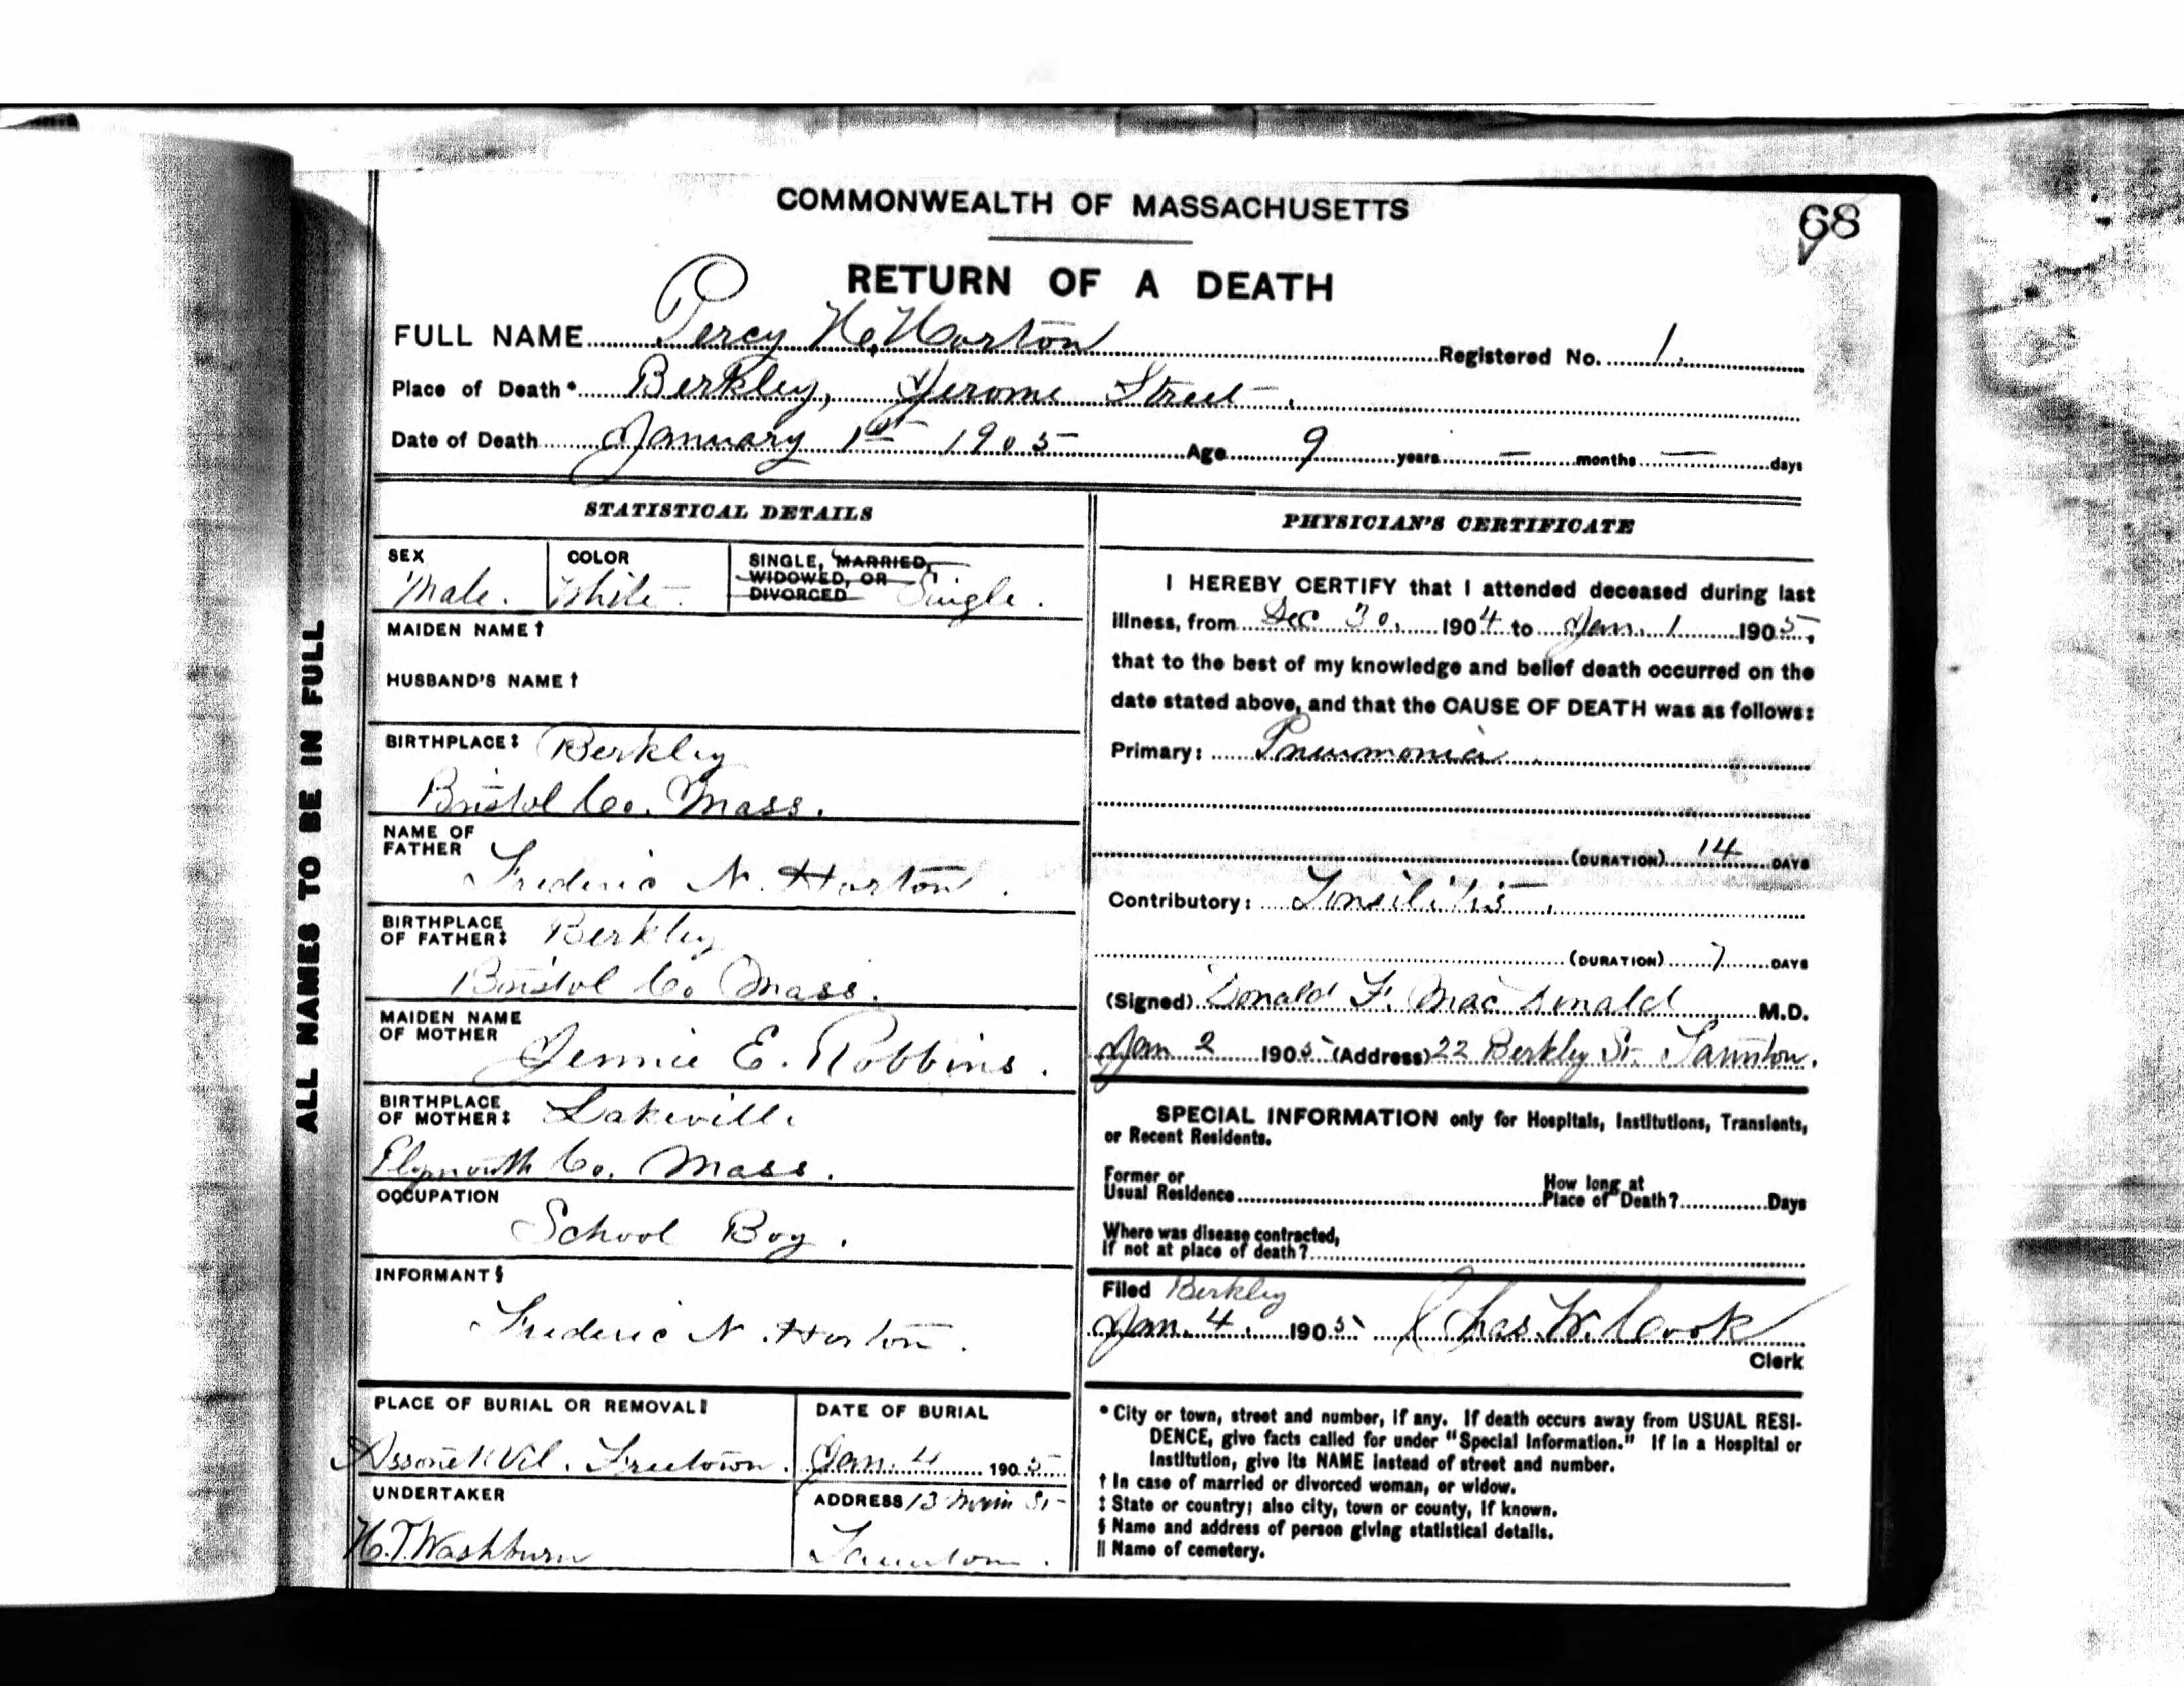 COMMONWEALTH OF MASSACHUSETTS
68
RETURN OF A DEATH
FULL NAME Percy H. Horton Registered No. 1.
Place of Death* Berkley, Jerome Street.
Date of Death January 1st 1905 Age 9 years — months — days
ALL NAMES TO BE IN FULL
STATISTICAL DETAILS
SEX COLOR SINGLE, MARRIED,
WIDOWED, OR
DIVORCED
Male. White. Single.
MAIDEN NAME †
HUSBAND'S NAME †
BIRTHPLACE ‡ Berkley
Bristol Co. Mass.
NAME OF
FATHER
Frederic N. Horton.
BIRTHPLACE
OF FATHER ‡ Berkley
Bristol Co Mass.
MAIDEN NAME
OF MOTHER
Jennie E. Robbins.
BIRTHPLACE
OF MOTHER ‡ Lakeville
Plymouth Co. Mass.
OCCUPATION
School Boy.
INFORMANT §
Frederic N. Horton.
PLACE OF BURIAL OR REMOVAL ‖
Assonet Vil. Freetown.
DATE OF BURIAL
Jan. 4 1905
UNDERTAKER
H.T. Washburn
ADDRESS 13 Main St
Taunton.
PHYSICIAN'S CERTIFICATE
I HEREBY CERTIFY that I attended deceased during last
illness, from Dec 30, 1904 to Jan. 1 1905,
that to the best of my knowledge and belief death occurred on the
date stated above, and that the CAUSE OF DEATH was as follows:
Primary: Pneumonia
(DURATION) 14 DAYS
Contributory: Tonsilitis.
(DURATION) 7 DAYS
(Signed) Donald F. MacDonald M.D.
Jan 2 1905 (Address) 22 Berkley St. Taunton.
SPECIAL INFORMATION only for Hospitals, Institutions, Transients,
or Recent Residents.
Former or
Usual Residence
How long at
Place of Death? Days
Where was disease contracted,
If not at place of death?
Filed Berkley
Jan. 4. 1905 Chas. W. Cook
Clerk
* City or town, street and number, if any. If death occurs away from USUAL RESI-
DENCE, give facts called for under "Special Information." If in a Hospital or
Institution, give its NAME instead of street and number.
† In case of married or divorced woman, or widow.
‡ State or country; also city, town or county, if known.
§ Name and address of person giving statistical details.
‖ Name of cemetery.